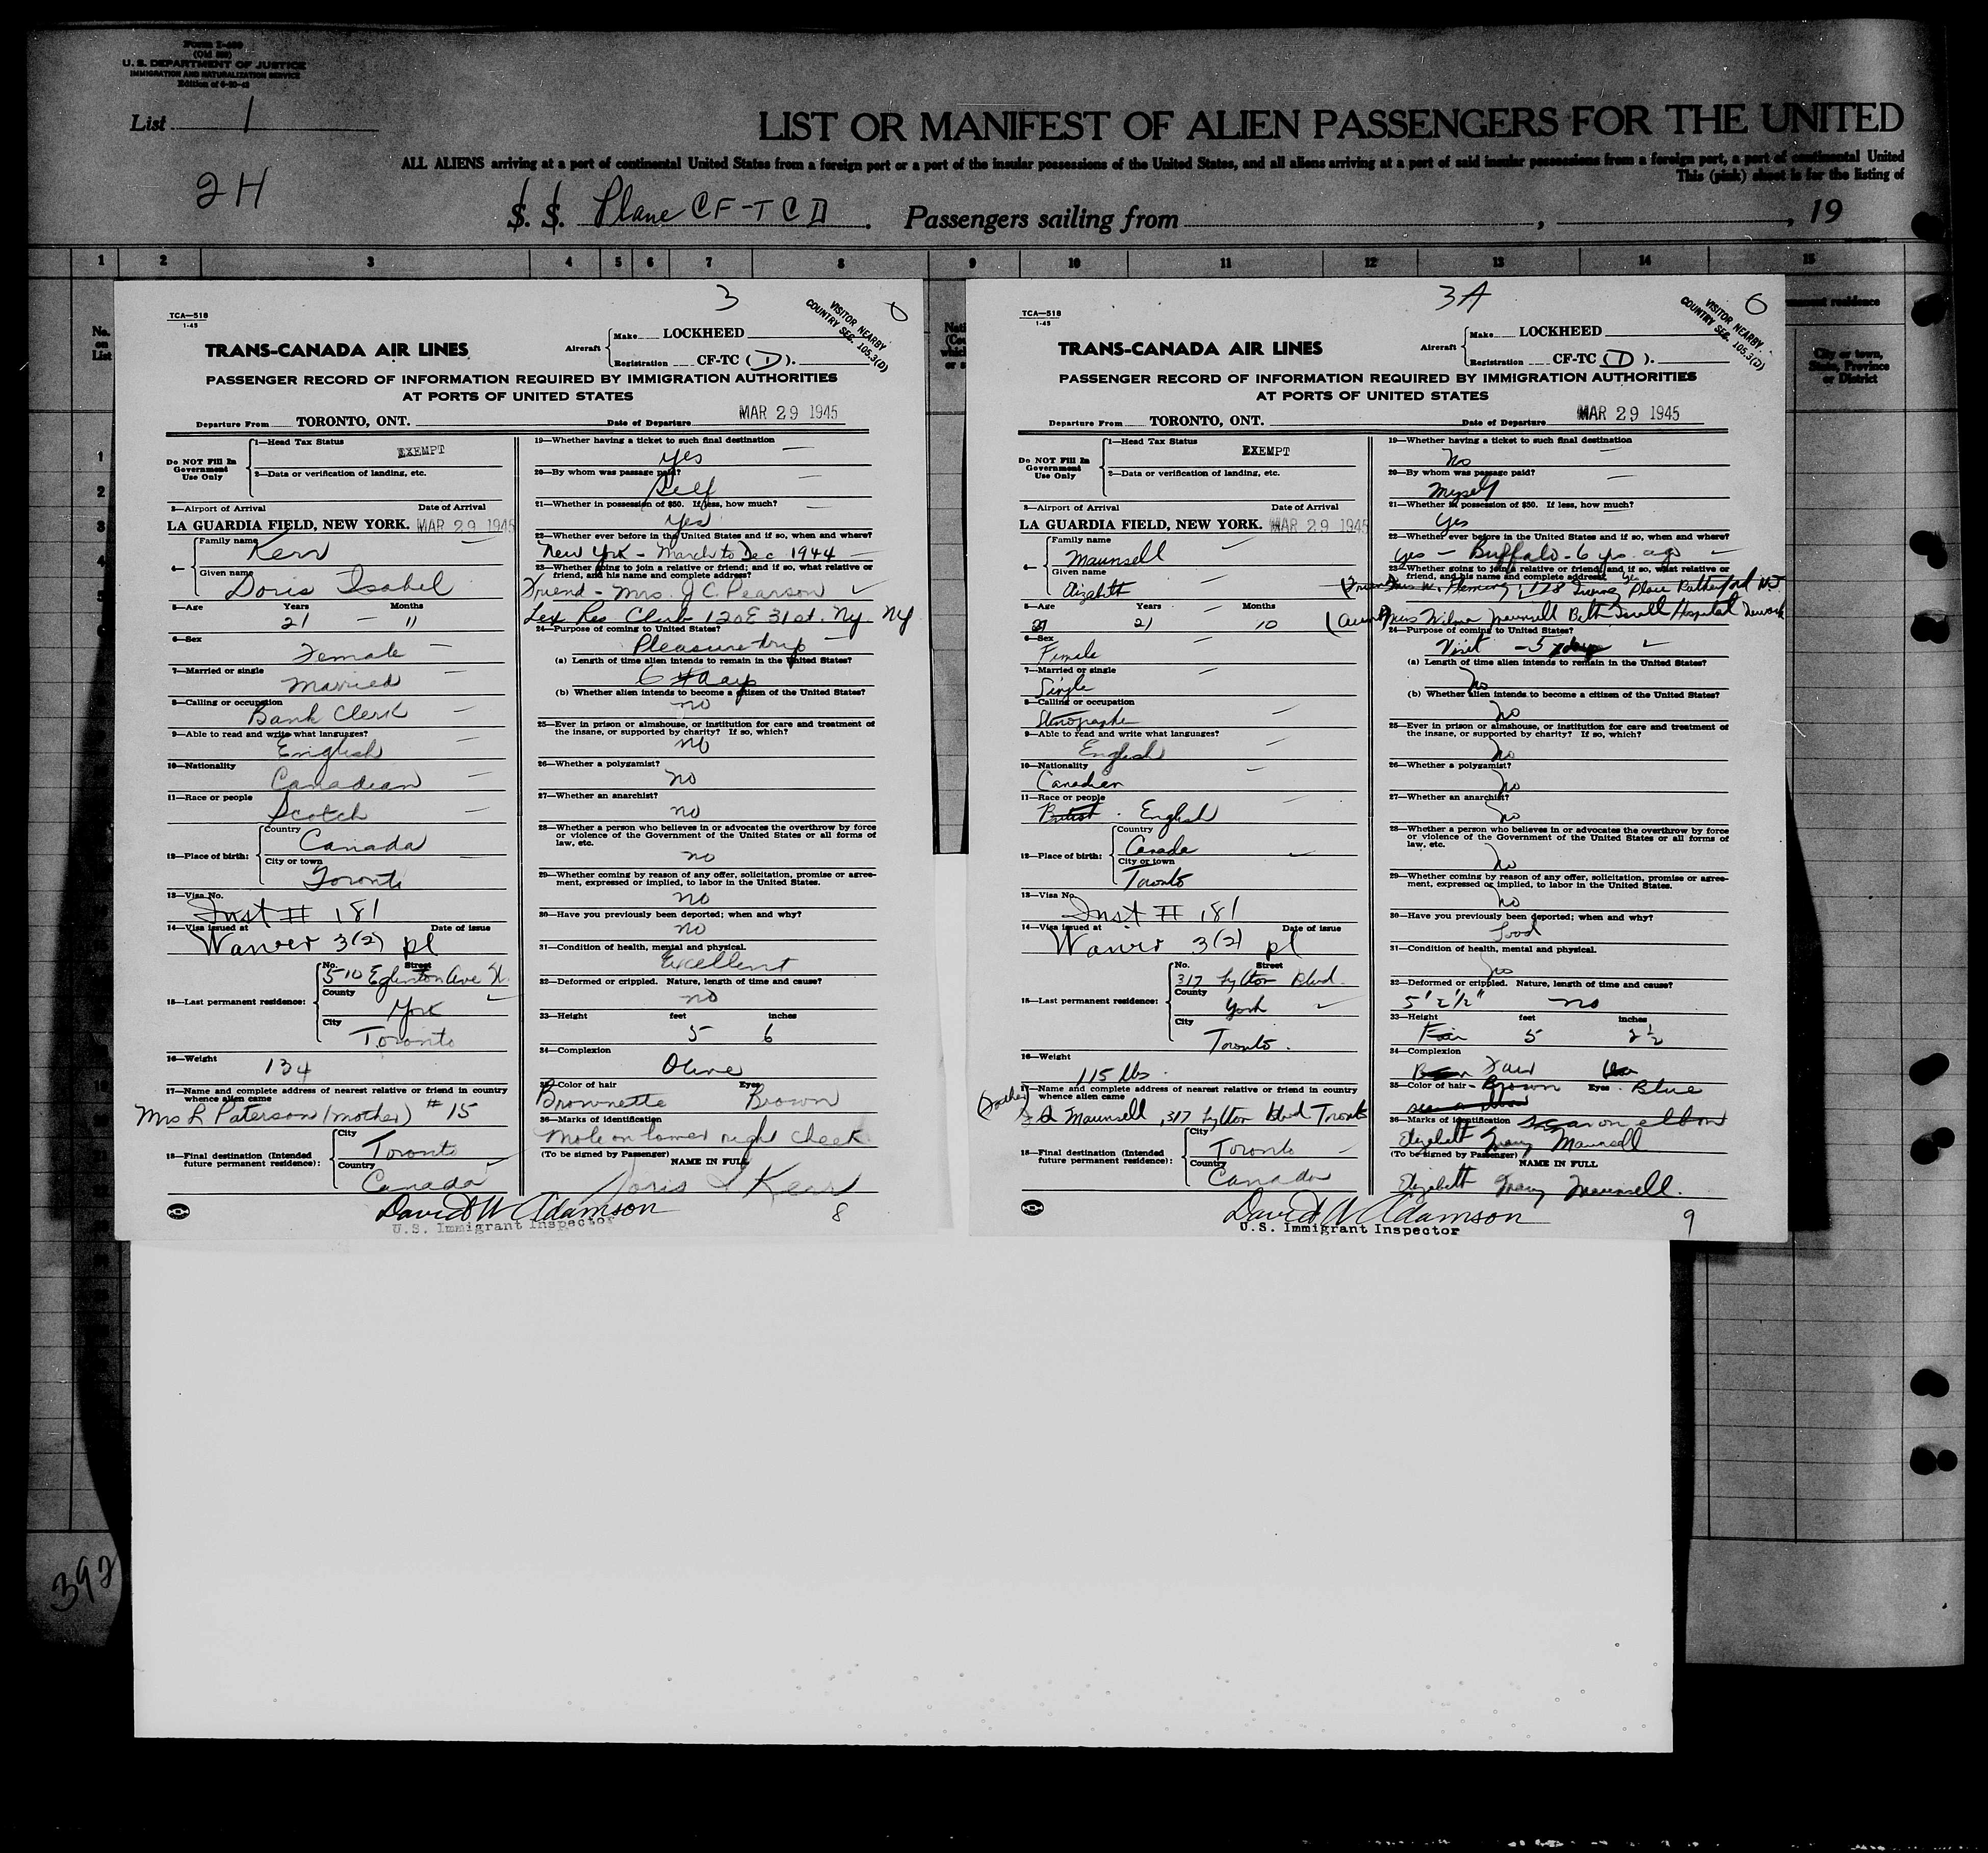 Form I-409
(Old 500)
U. S. DEPARTMENT OF JUSTICE
IMMIGRATION AND NATURALIZATION SERVICE
List 1
LIST OR MANIFEST OF ALIEN PASSENGERS FOR THE UNITED
ALL ALIENS arriving at a port of continental United States from a foreign port or a port of the insular possessions of the United States, and all aliens arriving at a port of said insular possessions from a foreign port, a port of continental United
This (pink) sheet is for the listing of
2H
S. S. Plane CF-TCD. Passengers sailing from , , 19
1 2 3 4 5 6 7 8 9 10 11 12 13 14 15
No. on List
City or town, State, Province or District
3
TCA—518
1-45
VISITOR NEARBY
COUNTRY SEC. 105.3(D)
Make LOCKHEED
TRANS-CANADA AIR LINES
Aircraft
Registration CF-TC (D).
PASSENGER RECORD OF INFORMATION REQUIRED BY IMMIGRATION AUTHORITIES
AT PORTS OF UNITED STATES
MAR 29 1945
Departure From TORONTO, ONT. Date of Departure
Do NOT Fill In Government Use Only
1—Head Tax Status
EXEMPT
2—Data or verification of landing, etc.
3—Airport of Arrival Date of Arrival
LA GUARDIA FIELD, NEW YORK. MAR 29 1945
4—
Family name
Kerr
Given name
Doris Isabel
5—Age Years Months
21 — 11
6—Sex
Female
7—Married or single
Married
8—Calling or occupation
Bank Clerk
9—Able to read and write what languages?
English
10—Nationality
Canadian
11—Race or people
Scotch
12—Place of birth:
Country
Canada
City or town
Toronto
13—Visa No.
Inst # 181
14—Visa issued at Date of issue
Waiver 3(2) pl
15—Last permanent residence:
No. Street
510 Eglinton Ave W.
County
York
City
Toronto
16—Weight
134
17—Name and complete address of nearest relative or friend in country
whence alien came
Mrs L Paterson (mother) # 15
18—Final destination (Intended
future permanent residence):
City
Toronto
Country
Canada
19—Whether having a ticket to such final destination
Yes
20—By whom was passage paid?
Self
21—Whether in possession of $50. If less, how much?
Yes
22—Whether ever before in the United States and if so, when and where?
New York - March to Dec 1944
23—Whether going to join a relative or friend; and if so, what relative or
friend, and his name and complete address?
Friend - Mrs. J C. Pearson
Lex Res Club 120 E 31 st. Ny Ny
24—Purpose of coming to United States?
Pleasure trip
(a) Length of time alien intends to remain in the United States?
6 days
(b) Whether alien intends to become a citizen of the United States?
no
25—Ever in prison or almshouse, or institution for care and treatment of
the insane, or supported by charity? If so, which?
no
26—Whether a polygamist?
no
27—Whether an anarchist?
no
28—Whether a person who believes in or advocates the overthrow by force
or violence of the Government of the United States or all forms of
law, etc.
no
29—Whether coming by reason of any offer, solicitation, promise or agree-
ment, expressed or implied, to labor in the United States.
no
30—Have you previously been deported; when and why?
no
31—Condition of health, mental and physical.
Excellent
32—Deformed or crippled. Nature, length of time and cause?
no
33—Height feet inches
5 6
34—Complexion
Olive
35—Color of hair Eyes
Brownette Brown
36—Marks of identification
Mole on lower right cheek
(To be signed by Passenger)
NAME IN FULL
Doris I Kerr
David W Adamson
U.S. Immigrant Inspector
8
3A
TCA—518
1-45
VISITOR NEARBY
COUNTRY SEC. 105.3(D)
Make LOCKHEED
TRANS-CANADA AIR LINES
Aircraft
Registration CF-TC (D).
PASSENGER RECORD OF INFORMATION REQUIRED BY IMMIGRATION AUTHORITIES
AT PORTS OF UNITED STATES
MAR 29 1945
Departure From TORONTO, ONT. Date of Departure
Do NOT Fill In Government Use Only
1—Head Tax Status
EXEMPT
2—Data or verification of landing, etc.
3—Airport of Arrival Date of Arrival
LA GUARDIA FIELD, NEW YORK. MAR 29 1945
4—
Family name
Maunsell
Given name
Elizabeth
5—Age Years Months
21 10
6—Sex
Female
7—Married or single
Single
8—Calling or occupation
Stenographer
9—Able to read and write what languages?
English
10—Nationality
Canadian
11—Race or people
British. English
12—Place of birth:
Country
Canada
City or town
Toronto
13—Visa No.
Inst # 181
14—Visa issued at Date of issue
Waiver 3(2) pl
15—Last permanent residence:
No. Street
317 Lytton Blvd.
County
York
City
Toronto.
16—Weight
115 lbs.
17—Name and complete address of nearest relative or friend in country
whence alien came
(Father)
Maunsell, 317 Lytton Blvd Toronto
18—Final destination (Intended
future permanent residence):
City
Toronto
Country
Canada
19—Whether having a ticket to such final destination
No
20—By whom was passage paid?
Myself
21—Whether in possession of $50. If less, how much?
Yes
22—Whether ever before in the United States and if so, when and where?
yes — Buffalo - 6 yrs. ago
23—Whether going to join a relative or friend; and if so, what relative or
friend, and his name and complete address? Yes
(Friend) W. Fleming, 128 Place Rutherford NJ.
(Aunt) Miss Wilma Maunsell Beth Israel Hospital Newark
24—Purpose of coming to United States?
Visit - 5 days
(a) Length of time alien intends to remain in the United States?
No
(b) Whether alien intends to become a citizen of the United States?
No
25—Ever in prison or almshouse, or institution for care and treatment of
the insane, or supported by charity? If so, which?
No
26—Whether a polygamist?
No
27—Whether an anarchist?
No
28—Whether a person who believes in or advocates the overthrow by force
or violence of the Government of the United States or all forms of
law, etc.
No
29—Whether coming by reason of any offer, solicitation, promise or agree-
ment, expressed or implied, to labor in the United States.
No
30—Have you previously been deported; when and why?
Good
31—Condition of health, mental and physical.
No
32—Deformed or crippled. Nature, length of time and cause?
5' 2 1/2" no
33—Height feet inches
Fair 5 2 1/2
34—Complexion
Fair
35—Color of hair - Brown Eyes - Blue
36—Marks of identification scar on elbow
Elizabeth Maunsell
(To be signed by Passenger)
NAME IN FULL
Elizabeth Maunsell.
David W Adamson
U.S. Immigrant Inspector
9
392